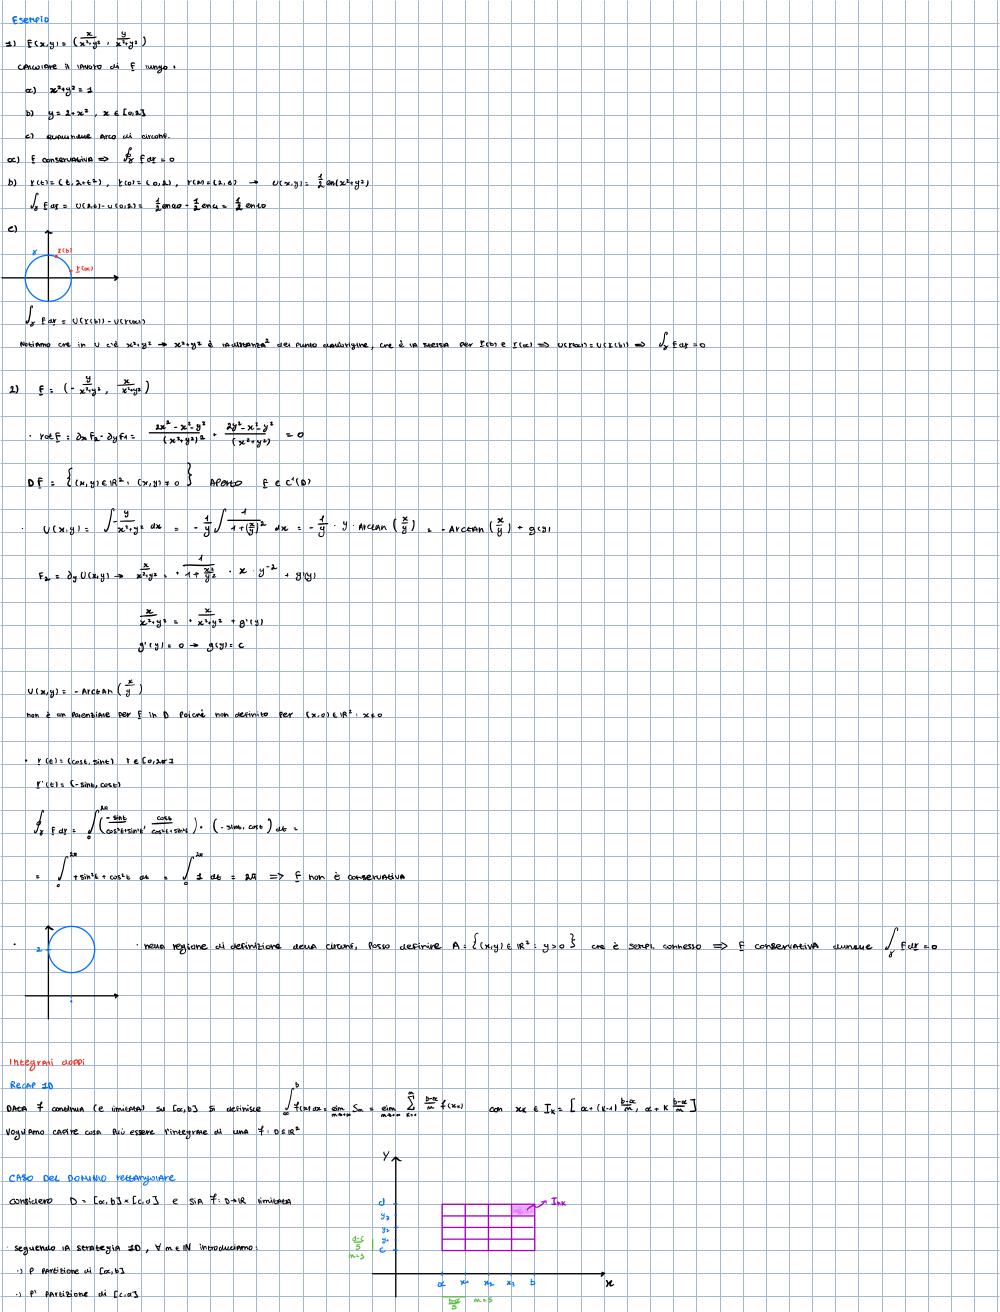 Esempio
1) F(x,y) = (x/(x²+y²), y/(x²+y²))
calcolare il lavoro di F lungo:
a) x²+y² = 1
b) y = 2+x², x ∈ [0,2]
c) qualunque arco di circonf.
a) F conservativa => ∮γ F dr = 0
b) r(t) = (t, 2+t²), r(0) = (0,2), r(2) = (2,6) → U(x,y) = 1/2 ln(x²+y²)
∫γ F dr = U(2,6) - U(0,2) = 1/2 ln40 - 1/2 ln4 = 1/2 ln10
c)
γ r(b)
r(a)
∫γ F dr = U(r(b)) - U(r(a))
Notiamo che in U c'è x²+y² → x²+y² è la distanza² del punto dall'origine, che è la stessa per r(b) e r(a) => U(r(a)) = U(r(b)) => ∫γ F dr = 0
2) F = (- y/(x²+y²), x/(x²+y²))
· rot F = ∂x F2 - ∂y F1 = (2x² - x² - y²)/(x²+y²)² + (2y² - x² - y²)/(x²+y²) = 0
DF = {(x,y) ∈ ℝ² : (x,y) ≠ 0} aperto F ∈ C¹(D)
· U(x,y) = ∫ - y/(x²+y²) dx = - 1/y ∫ 1/(1+(x/y)²) dx = - 1/y · y · Arctan (x/y) = - Arctan (x/y) + g(y)
F2 = ∂y U(x,y) → x/(x²+y²) = + 1/(1+x²/y²) · x · y⁻² + g'(y)
x/(x²+y²) = + x/(x²+y²) + g'(y)
g'(y) = 0 → g(y) = c
U(x,y) = - Arctan (x/y)
non è un potenziale per F in D poichè non definito per (x,0) ∈ ℝ² : x≠0
· r(t) = (cost, sint) t ∈ [0,2π]
r'(t) = (-sint, cost)
∮γ F dr = ∫₀^2π (-sint/(cos²t+sin²t), cost/(cos²t+sin²t)) · (-sint, cost) dt =
= ∫₀^2π +sin²t + cos²t dt = ∫₀^2π 1 dt = 2π => F non è conservativa
2
· nella regione di definizione della circonf. posso definire A = {(x,y) ∈ ℝ² : y>0} che è sempl. connesso => F conservativa dunque ∫γ F dr = 0
Integrali doppi
Recap 1D
Data f continua (e limitata) su [a,b] si definisce ∫ₐᵇ f(x) dx = lim n→+∞ Sn = lim n→+∞ Σ k=1 n (b-a)/n f(xk) con xk ∈ Ik = [a+(k-1) (b-a)/n, a+k (b-a)/n]
Vogliamo capire cosa può essere l'integrale di una f: D⊆ℝ²
Caso del dominio rettangolare
considero D = [a,b] × [c,d] e sia f: D→ℝ limitata
· seguendo la strategia 1D, ∀ n ∈ ℕ introduciamo:
·) P partizione di [a,b]
·) P' partizione di [c,d]
y
d
y3
y2
y1
c
(d-c)/5
n=5
Ihk
a x1 x2 x3 b x
(b-a)/5 n=5